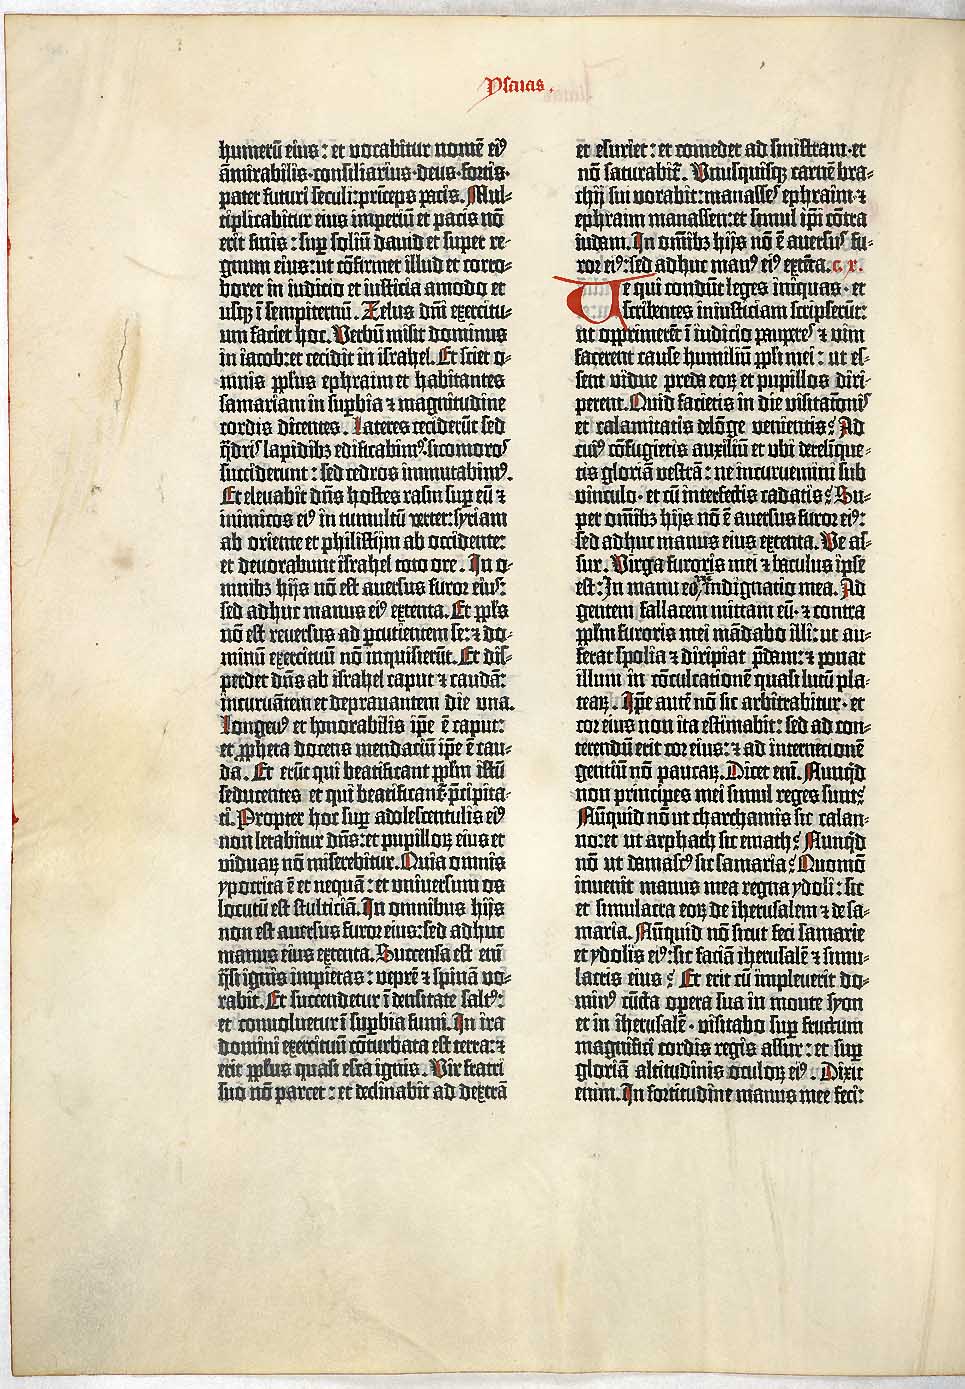 Ysaias.
humerū eius : et vocabitur nomē ei⁹
āmirabilis·consiliarius·deus·fortis·
pater futuri seculi: prīceps pacis. Mul-
tiplicabitur eius imperiū et pacis nō
erit finis : sup̄ soliū dauid et super re-
gnum eius: ut cōfirmet illud et corro-
boret in iudicio et iusticia amodo et
usq̨ ī sempiternū. Zelus dn̄i exercitu-
um faciet hoc. Verbū misit dominus
in iacob: et cecidit in israhel. Et sciet o-
mnis ppl̄us ephraim et habitantes
samariam in supbia ⁊ magnitudine
cordis dicentes. Lateres ceciderūt sed
q̄dris lapidibꝫ edificabim⁹. sicomoros
succiderunt : sed cedros immutabim⁹.
Et eleuabit dn̄s hostes rasin sup̄ eū ⁊
inimicos ei⁹ in tumultū vertet: syriam
ab oriente et philistijm ab occidente:
et deuorabunt israhel toto ore. In o-
mnibꝫ hijs nō est auersus furor eius:
sed adhuc manus ei⁹ extenta. Et ppl̄s
nō est reuersus ad p̱cutientem se: ⁊ do-
minū exercituū nō inquisierūt. Et dis-
perdet dn̄s ab israhel caput ⁊ caudā:
incuruātem et deprauantem die una.
Longeu⁹ et honorabilis ip̄e ē caput:
et ꝓpheta docens mendaciū ip̄e ē cau-
da. Et erūt qui beatificant ppl̄m istū
seducentes et qui beatificant̄ p̄cipita-
ti. Propter hoc sup̄ adolescentulis ei⁹
non letabitur dn̄s: et pupilloꝝ eius et
viduaꝝ nō miserebitur. Quia omnis
ypocrita ē et nequā : et vniuersum os
locutū est stulticiā. In omnibus hijs
non est auersus furor eius: sed adhuc
manus eius extenta. Succensa est eni̅
q̄si ignis impietas : veprē ⁊ spinā vo-
rabit. Et succendetur ī densitate salt⁹:
et conuoluetur ī sup̱bia fumi. In ira
domini exercituū cōturbata est terra: ⁊
erit ppl̄us quasi esca ignis. Vir fratri
suo nō parcet : et declinabit ad dextrā
et esuriet : et comedet ad sinistram·et
nō saturabit̄. Vnusquisq̨ carnē bra-
chij sui vorabit: manasses ephraim ⁊
ephraim manassen: et simul ip̄i cōtra
iudam. In om̄ibꝫ hijs nō ē auersus fu-
ror ei⁹: sed adhuc man⁹ ei⁹ extēta. c. x.
Ve qui condūt leges iniquas·et
scribentes iniusticiam scripserūt:
ut opprimerēt ī iudicio paupes ⁊ vim
facerent cause humiliū ppl̄i mei : ut es-
sent vidue preda eoꝝ et pupillos diri-
perent. Quid facietis in die visitatōnis
et calamitatis delōge venientis? Ad
cui⁹ cōfugietis auxiliū et vbi derelique-
tis gloriā vestrā : ne incuruemini sub
vinculo·et cū interfectis cadatis? Su-
per om̄ibꝫ hijs nō ē auersus furor ei⁹:
sed adhuc manus eius extenta. Ve as-
sur. Virga furoris mei ⁊ baculus ipse
est: In manu eoꝝ indignatio mea. Ad
gentem fallacem mittam eū·⁊ contra
ppl̄m furoris mei mādabo illi: ut au-
ferat spolia ⁊ diripiat p̄dam: ⁊ ponat
illum in cōculcationē quasi lutū pla-
teaꝝ. Ip̄e autē nō sic arbitrabitur·et
cor eius non ita estimabit: sed ad con-
terendū erit cor eius: ⁊ ad internetionē
gentiū nō paucaꝝ. Dicet eni̅. Nunqͥd
non principes mei simul reges sunt?
Nūquid nō ut charchamis sic calan-
no: et ut arphath sic emath? Nunqͥd
nō ut damasc⁹ sic samaria? Quomō
inuenit manus mea regna ydoli: sic
et simulacra eoꝝ de iherusalem ⁊ de sa-
maria. Nūquid nō sicut feci samarie
et ydolis ei⁹: sic faciā iherusalē ⁊ simu-
lacris eius? Et erit cū impleuerit do-
min⁹ cūcta opera sua in monte syon
et in iherusalē·visitabo sup̄ fructum
magnifici cordis regis assur : et sup̄
gloriā altitudinis oculoꝝ ei⁹. Dixit
enim. In fortitudine manus mee feci: